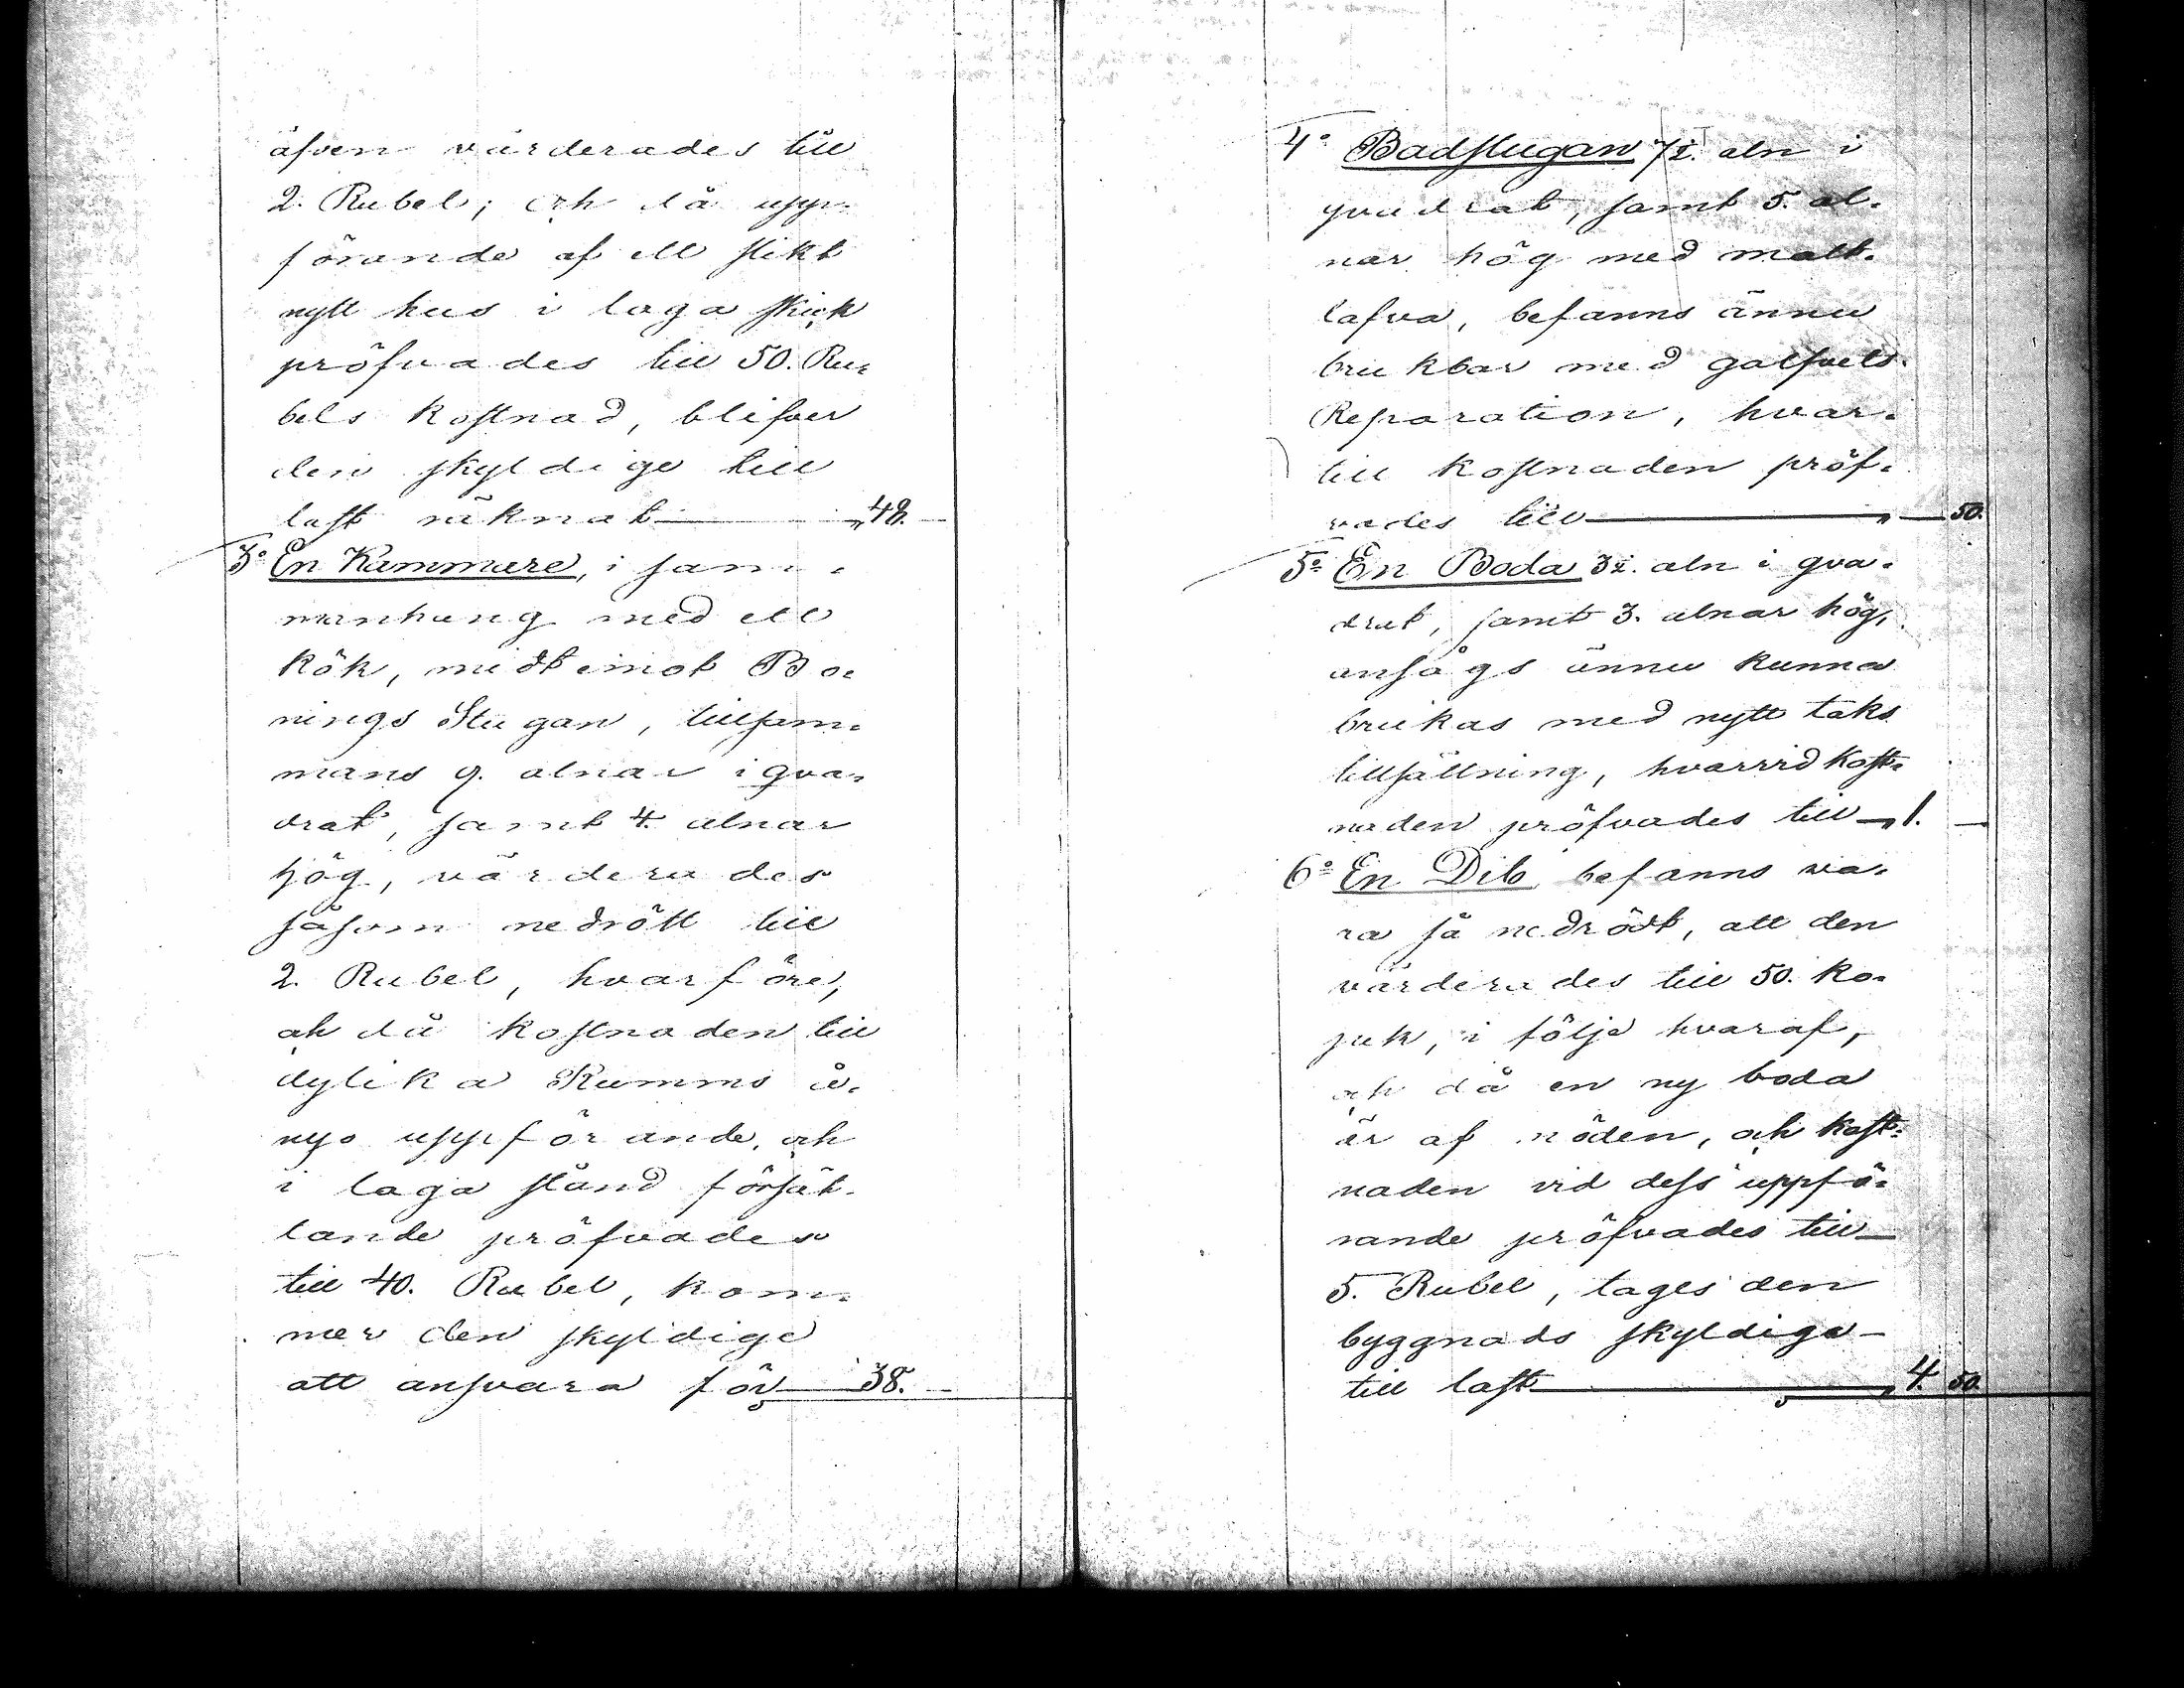 äfven värderades till
2. Rubel; och då upp-
förande af ett slikt
nytt hus i laga skick
pröfvades till 50. Ru-
bels kostnad, blifver
den skyldige till
last räknat — „ 48. —
3:o En Kammare, i sam-
manhang med ett
Kök, midt emot Bo-
nings Stugan, tillsam-
mans 9. alnar i qva-
drat, samt 4. alnar
hög, värderades
såsom nedrött till
2. Rubel, hvarföre,
och då kostnaden till
dylika Rumms å-
nyo uppförande, och
i laga stånd försät-
tande pröfvades
till 40. Rubel, kom-
mer den skyldige
att ansvara för — 38. —
4:o Badstugan 7½. aln i
qvadrat, samt 5. al-
nar hög med malt-
lafva, befanns ännu
brukbar med golfvets
Reparation, hvar-
till kostnaden pröf-
vades till — „ — 50.
5:o En Boda 3½. aln i qva-
drat, samt 3. alnar hög,
ansågs ännu kunna
brukas med nytt taks
tillsättning, hvarvid kost-
naden pröfvades till — „ 1. —
6:o En Dito befanns va-
ra så nedrödt, att den
värderades till 50. Ko-
pek, i följe hvaraf,
och då en ny boda
är af nöden, och kost-
naden vid dess uppfö-
rande pröfvades till —
5. Rubel, tages den
byggnads skyldige —
till last — „ 4. 50.